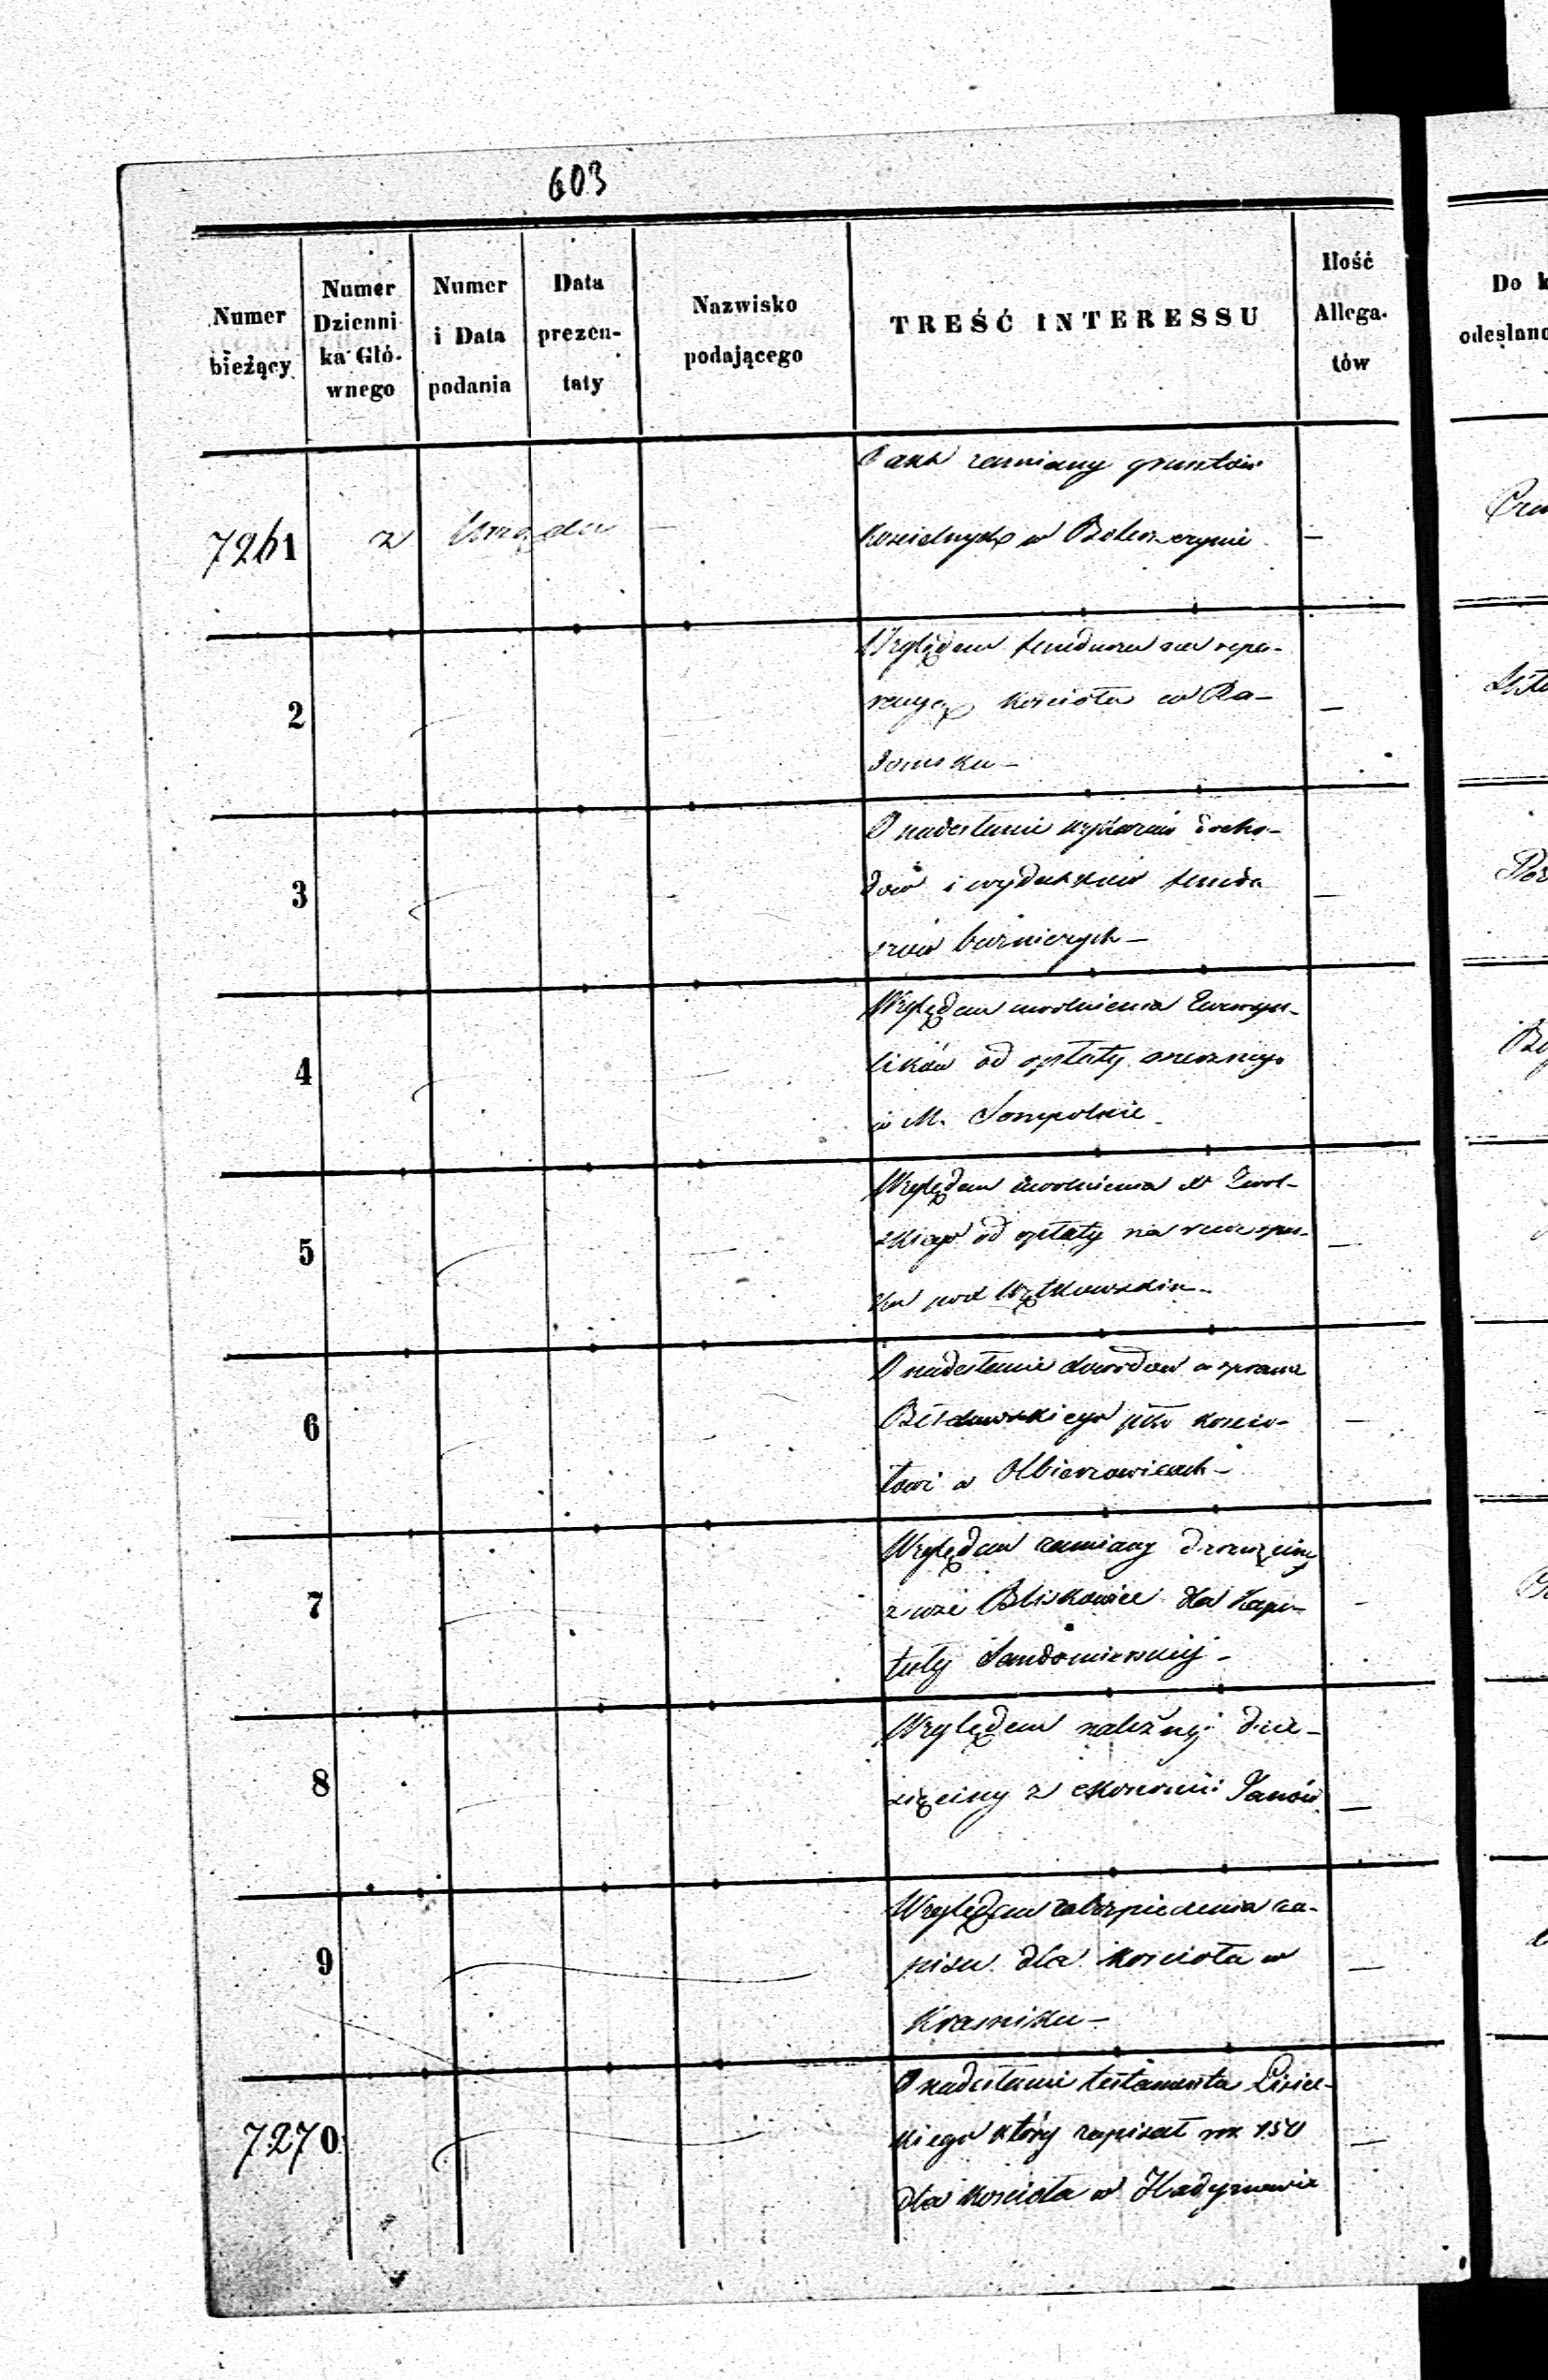 603
Numer bieżący
Numer Dzienni- ka Głó- wnego
Numer i Data podania
Data prezen- taty
Nazwisko podającego
TREŚĆ INTERESSU
Ilość Allega- tów
Do k
odesłano
7261 z Urzędu — O akt zamiany gruntów
kościelnych w —
2 Względem funduszu na repa-
racyą kościoła w Ra- —
domsku —
3 O nadesłanie wykazów docho-
dów i wydatków fundu —
szów bożniczych —
4 Względem uwolnienia Ewangie-
lików od opłaty mesznego
w M. Sompolnie
5 Względem uwolnienia
od opłaty na rzecz —
pod
6 O nadesłanie dowodów w sprawie
pko kościo- —
łowi w Olbierzowicach —
7 Względem zamiany dziesięciny
z wsi Bliskowice dla Kapi- —
tuły Sandomierskiej —
8 Względem należnej dzie-
sięciny z ekonomii Janów —
9 Względem zabezpieczenia za-
pisu dla kościoła w —
Kraśniku —
7270 O nadesłanie testamentu Lisiec-
kiego który zapisał rs 150 —
dla kościoła w